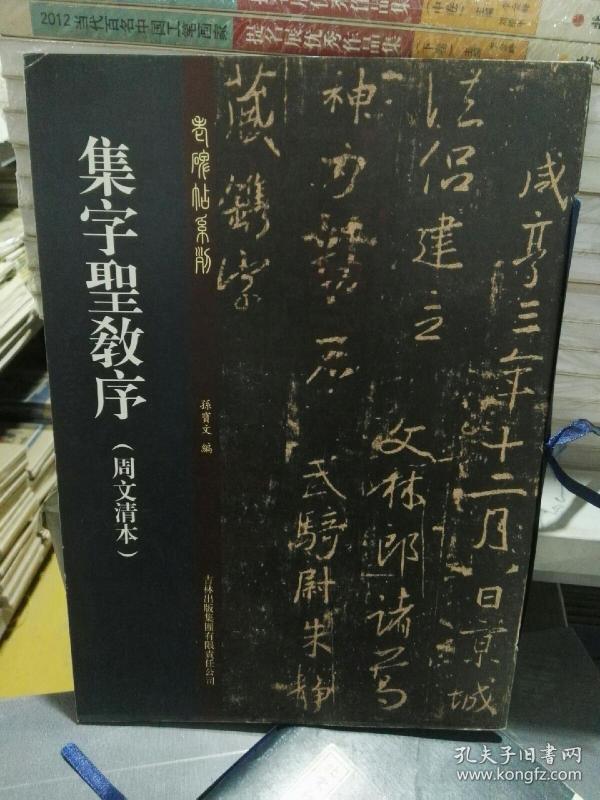 2012当代百名中国工笔画家
提名展优秀作品集
老碑帖系列
集字聖教序
(周文清本)
孫寶文 編
吉林出版集團有限責任公司
咸亨三年十二月八日京城
法侣建立
文林郎諸葛
神力勒石
武騎尉朱静
藏鐫字
孔夫子旧书网
www.kongfz.com